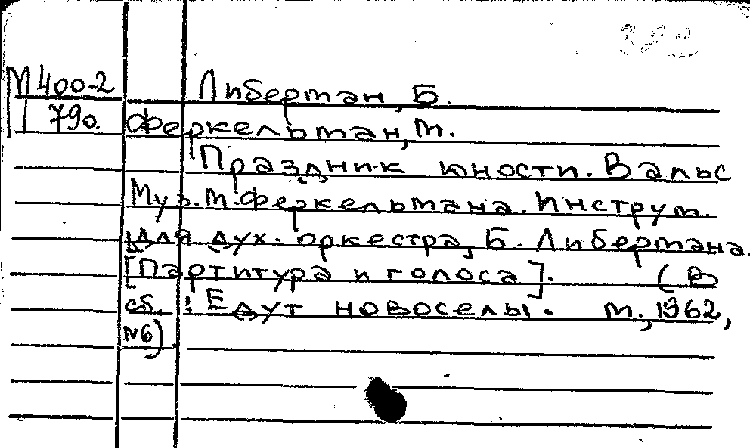 382
М400-2 Либертан, Б.
790. Феркельтан, М.
Праздник юности. Вальс
Муз. М. Феркельтана. Инструм.
для дух. оркестра, Б. Либертана.
[Партитура и голоса]. (В
сб.: Едут новоселы. М., 1962,
№6)